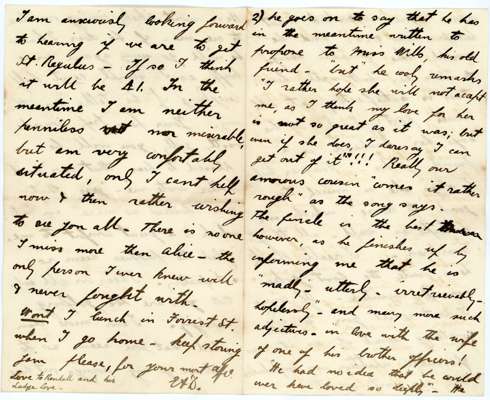 I am anxiously looking forward
to hearing if we are to get
St. Regulus - If so I think
it will be A1. In the
meantime I am neither
penniless nor miserable,
but am very comfortably
situated, only I can't help
now & then rather wishing
to see you all - There is no one
I miss more then Alice - the
only person I ever knew well
& never fought with.
Wont I lunch in Forrest St.
when I go home - keep strong
jam please, for your most affte
Love to Kendall and his
Ladye Love -
2) he goes on to say that he has
in the meantime written to
propose to Miss Wilb, his old
friend - "but" he cooly remarks
"I rather hope she will not accept
me, as I think my love for her
is not so great as it was; but
even if she does, I daresay I can
get out of it"!!! Really our
amorous cousin "comes it rather
rough" as the song says.
The finale is the best
however, as he finishes up by
informing me that he is
"madly - utterly - irretrievably -
hopelessly" - and many more such
adjectives - in love with the wife
of one of his brother officers!
"He had no idea that he could
ever have loved so deeply" - He